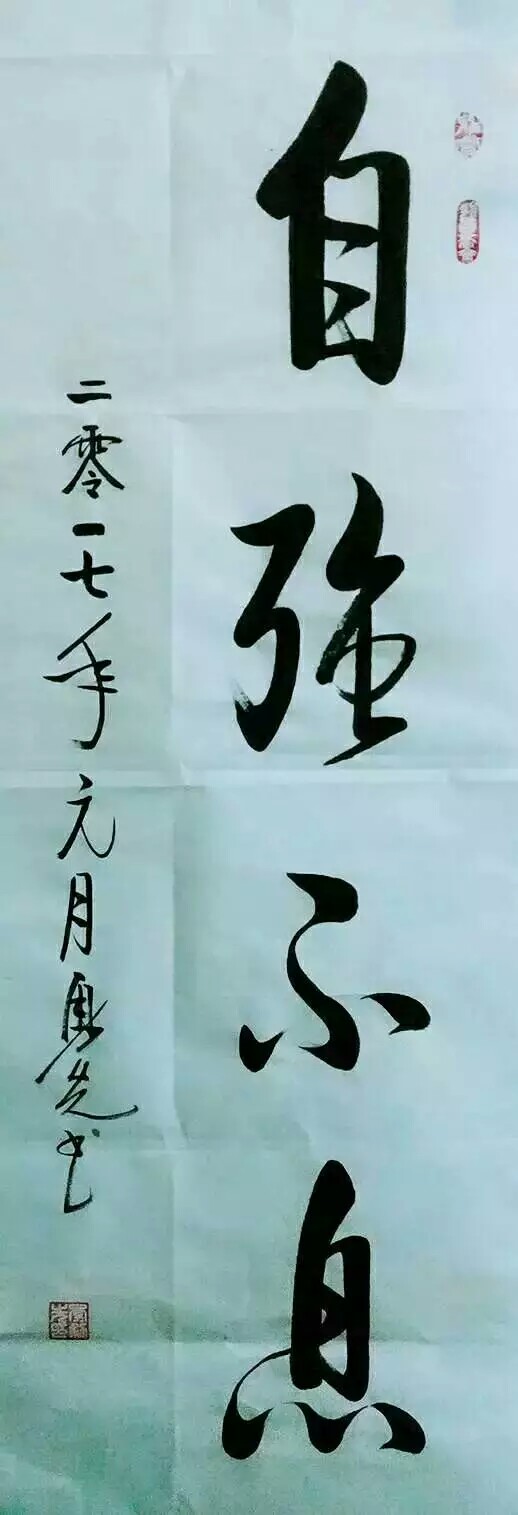 自强不息
二零一七年元月 先书